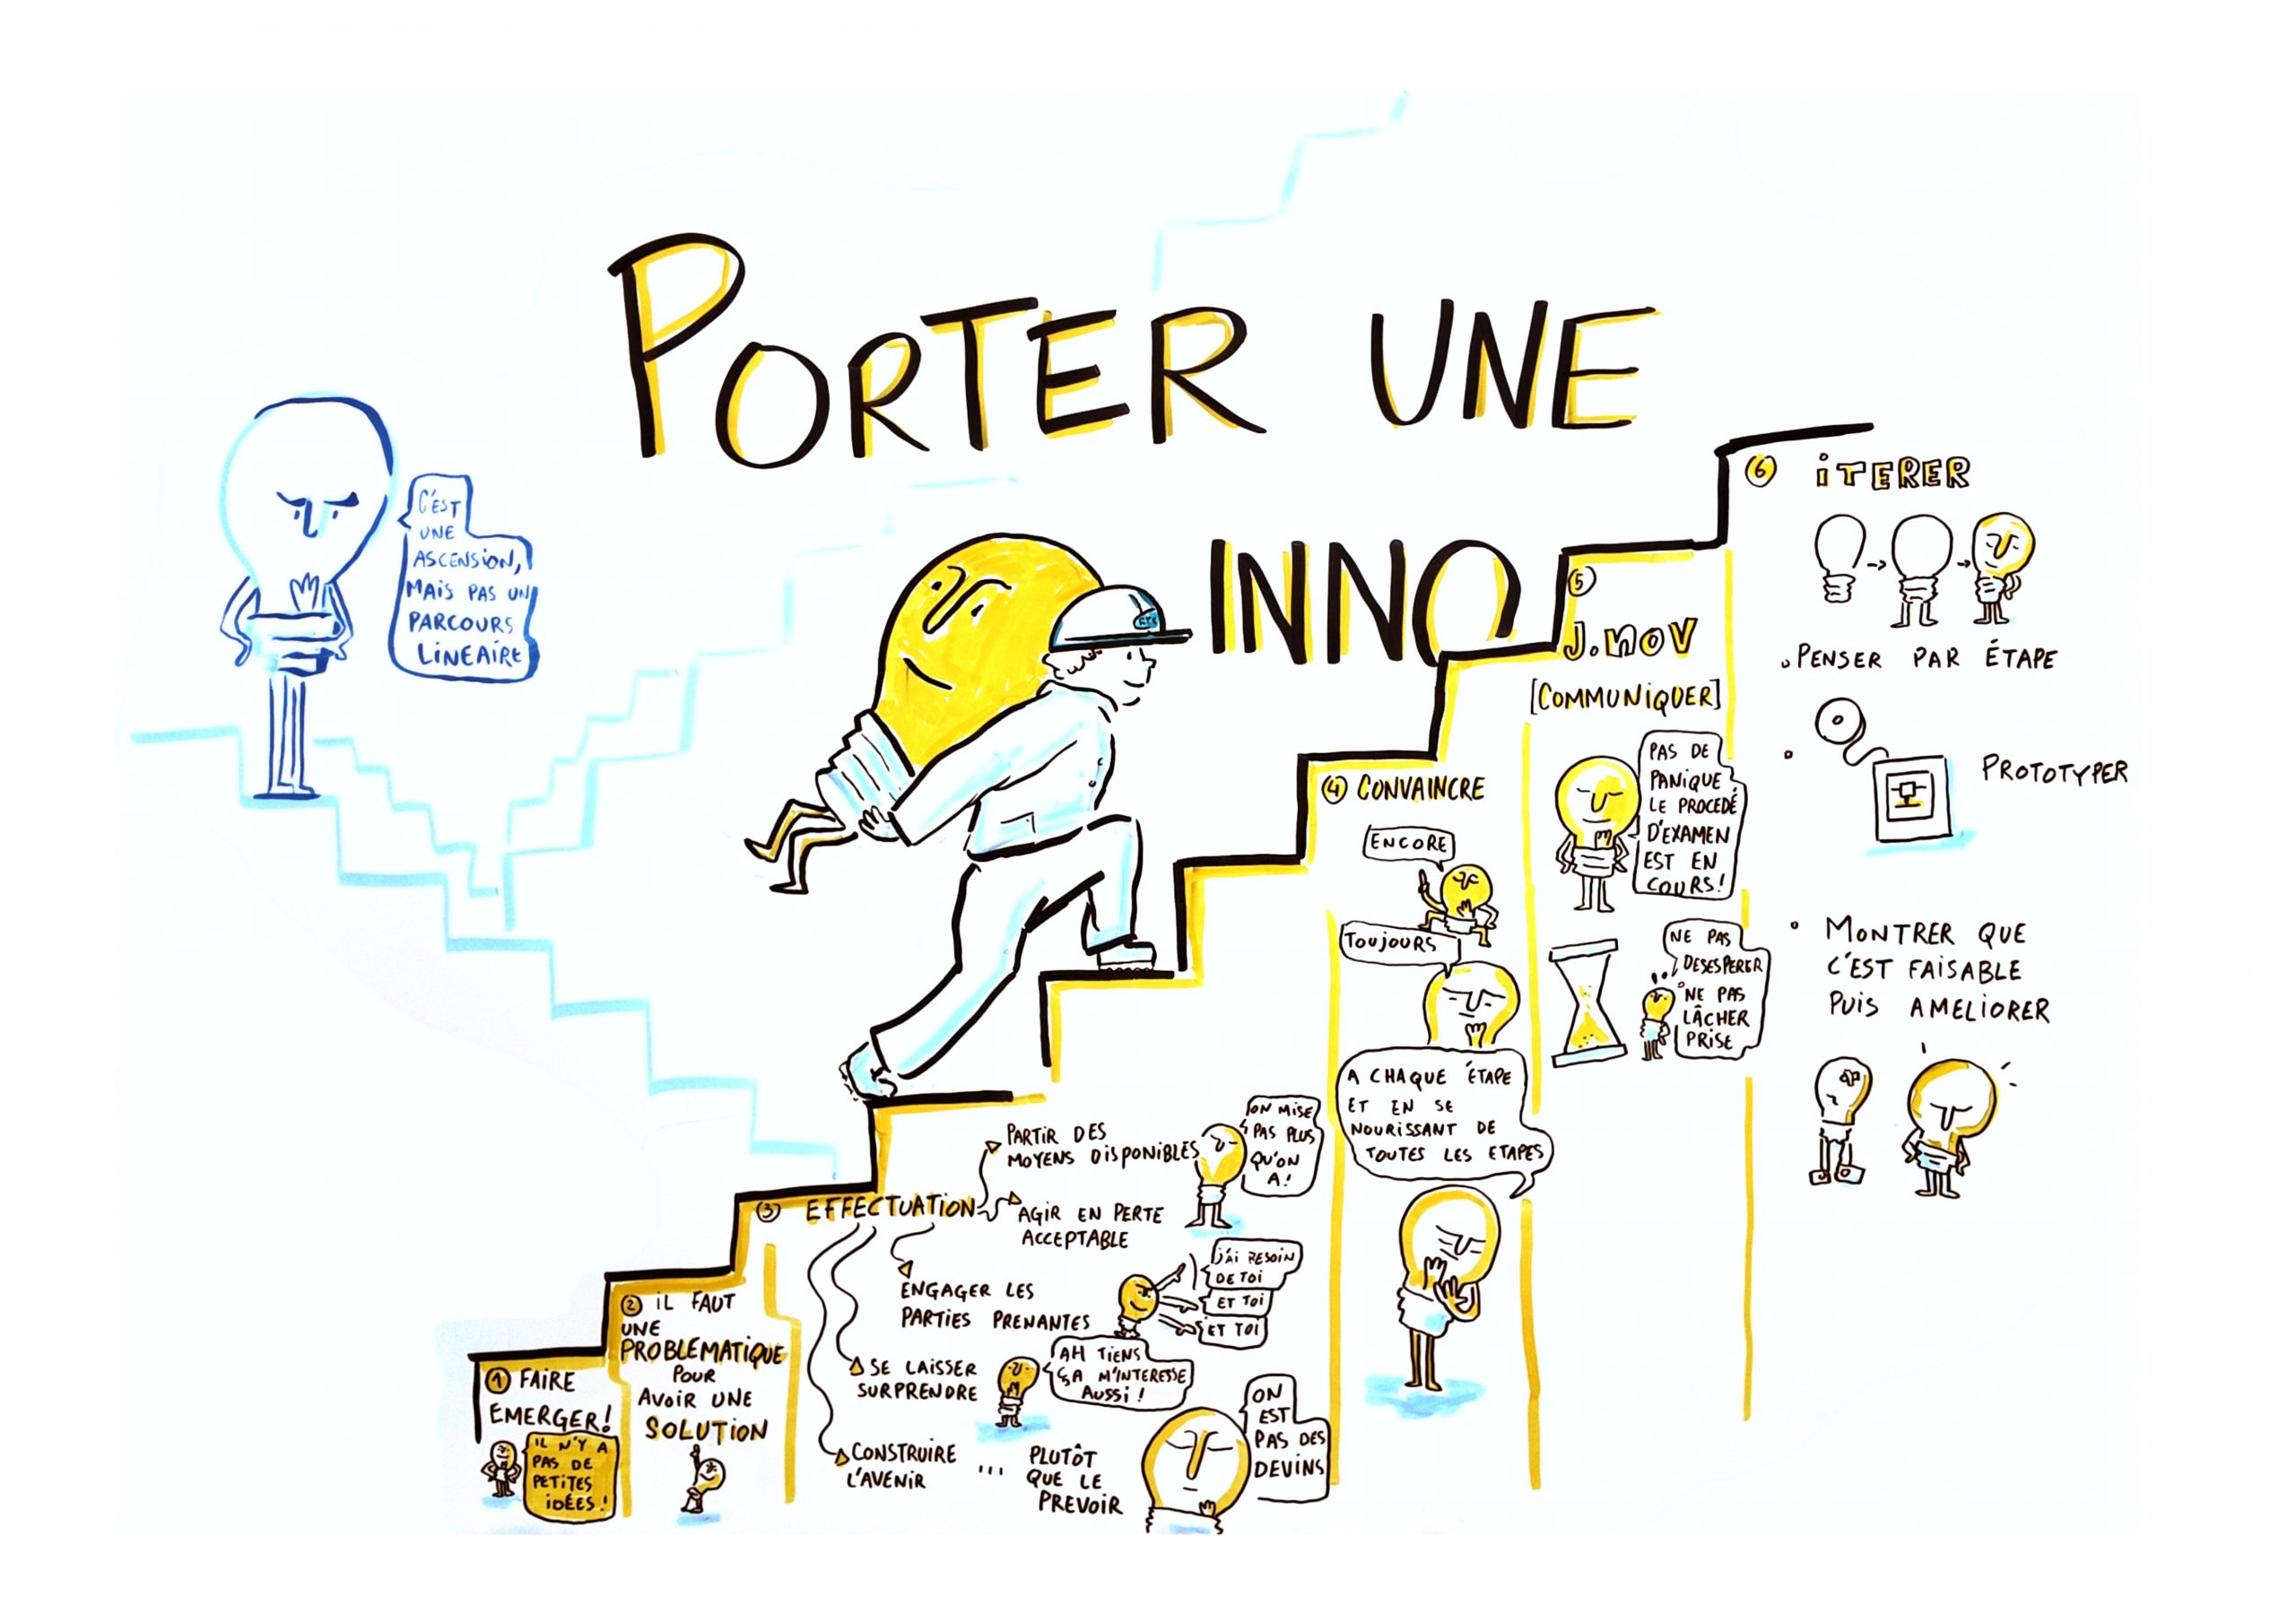 PORTER UNE
INNO
C'EST
UNE
ASCENSION,
MAIS PAS UN
PARCOURS
LINEAIRE
1 FAIRE
EMERGER!
IL N'Y A
PAS DE
PETITES
IDÉES!
2 IL FAUT
UNE
PROBLEMATIQUE
POUR
AVOIR UNE
SOLUTION
3 EFFECTUATION
PARTIR DES
MOYENS DISPONIBLES
ON MISE
PAS PLUS
QU'ON
A!
AGIR EN PERTE
ACCEPTABLE
ENGAGER LES
PARTIES PRENANTES
J'AI BESOIN
DE TOI
ET TOI
ET TOI
SE LAISSER
SURPRENDRE
AH TIENS
ÇA M'INTERESSE
AUSSI!
CONSTRUIRE
L'AVENIR
... PLUTÔT
QUE LE
PREVOIR
ON
EST
PAS DES
DEVINS
4 CONVAINCRE
ENCORE
TOUJOURS
A CHAQUE ÉTAPE
ET EN SE
NOURISSANT DE
TOUTES LES ETAPES
5
J.NOV
[COMMUNIQUER]
PAS DE
PANIQUE
LE PROCEDÉ
D'EXAMEN
EST EN
COURS!
NE PAS
DESESPERER
NE PAS
LÂCHER
PRISE
6 ITERER
PENSER PAR ÉTAPE
PROTOTYPER
MONTRER QUE
C'EST FAISABLE
PUIS AMELIORER